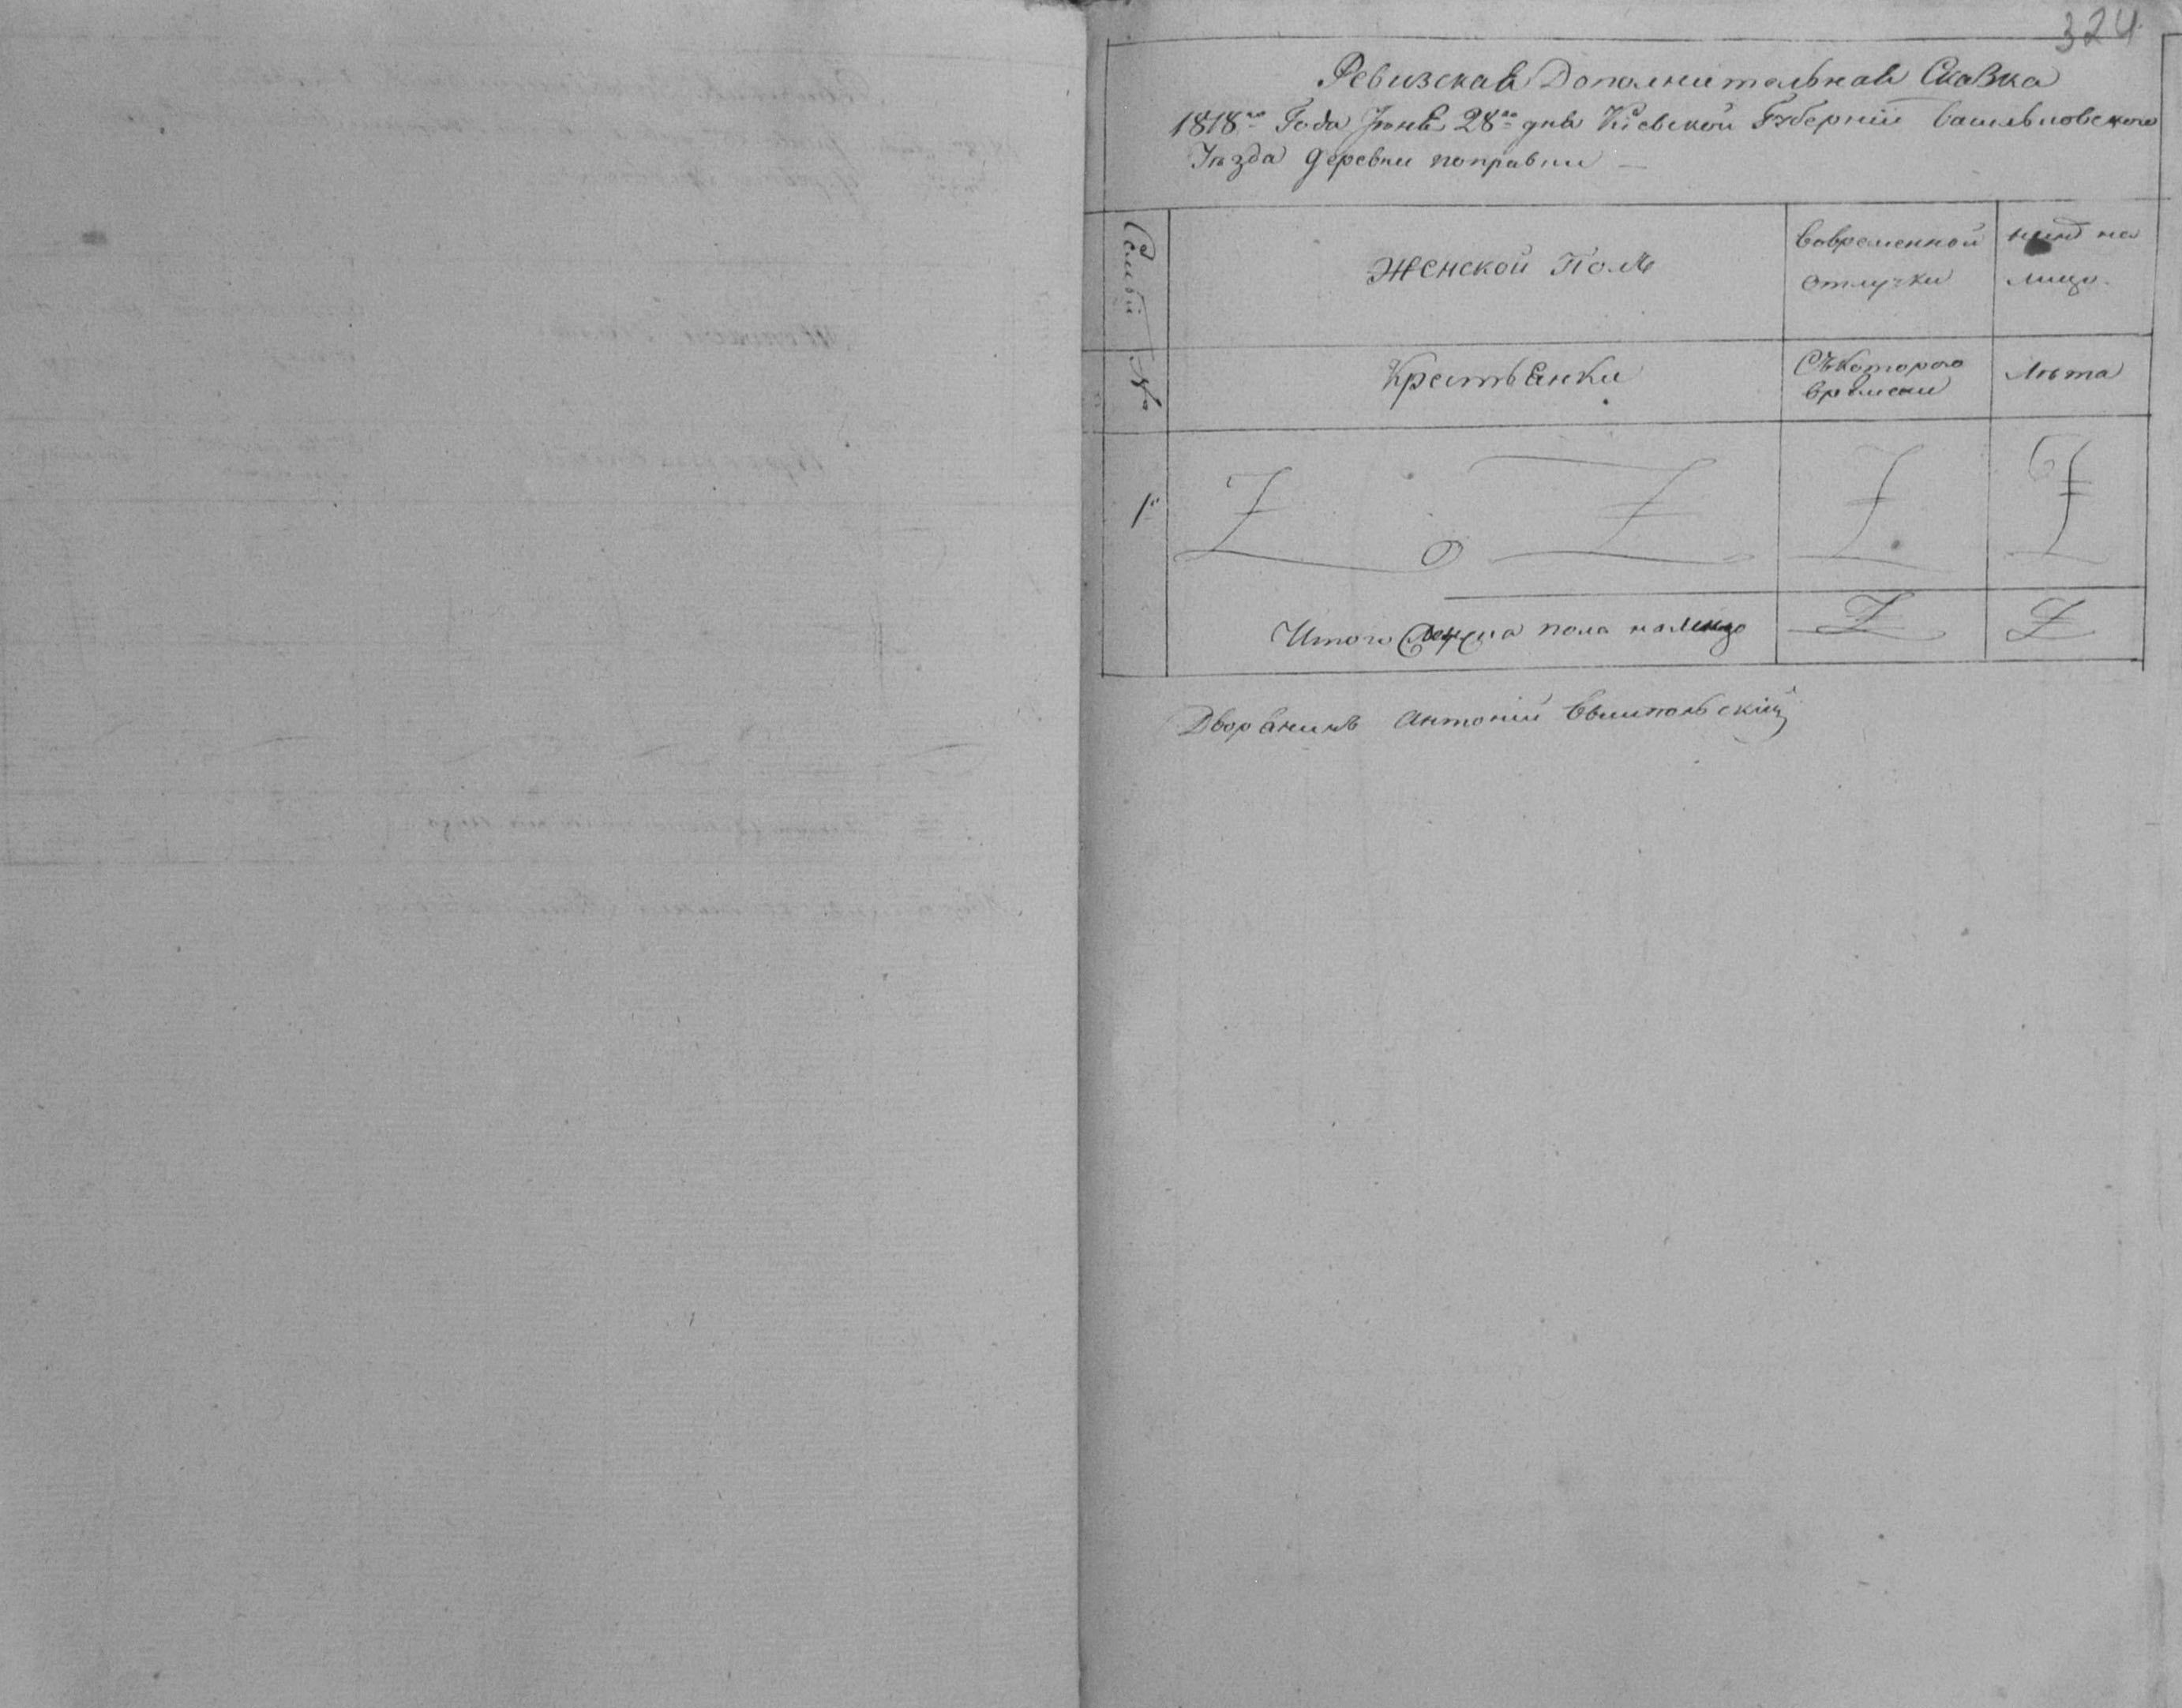 324
Ревизская Дополнительная Сказка
1818го Года Іюня 28го дня Кіевской Губерніи Васильковского
Уѣзда деревни поправки —
Семьи
Женской Полъ
Вовременной
отлучки
нинѣ на
лицо
№
Крестьянки
Съкоторого
времени
Лѣта
1й
Итого пола налицо
Дворянинъ Антоній